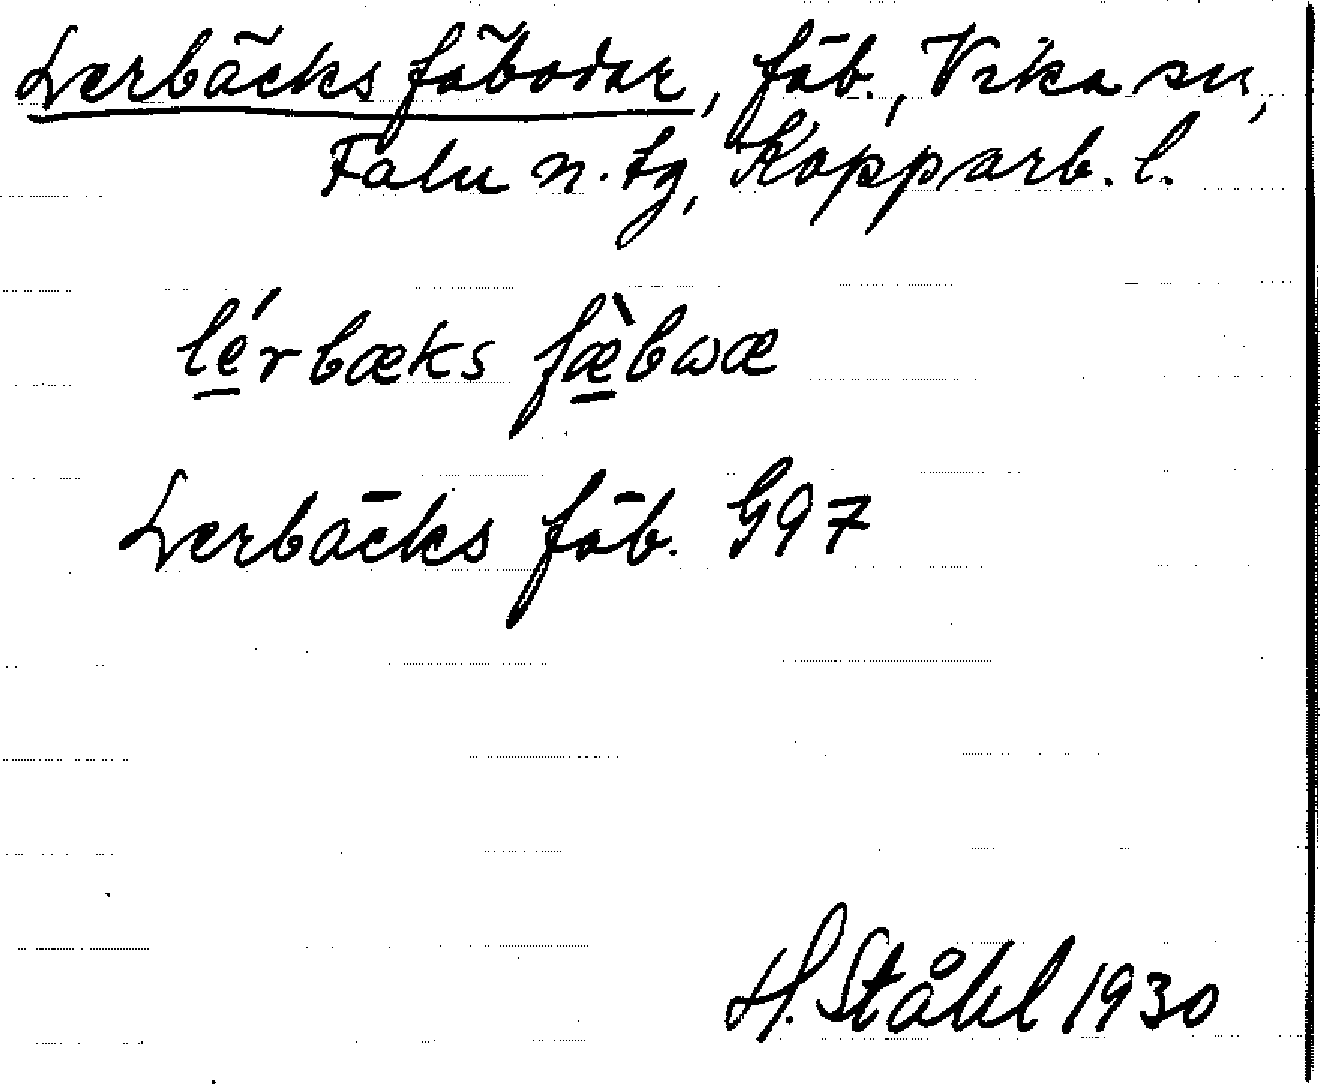 Lerbäcks fäbodar, fäb., Vika sn,
Falu n. tg, Kopparb. l.
lérbæks fæ̀bωæ
Lerbäcks fäb. G97
H. Ståhl 1930